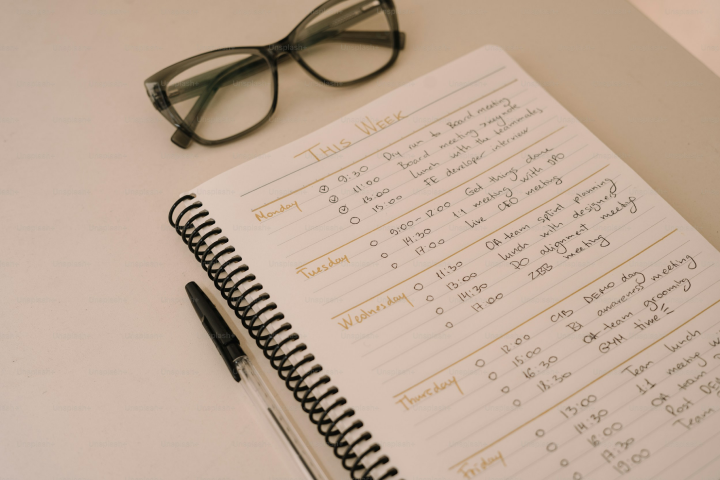 THIS WEEK
Monday
9:30 Dry run to Board meeting
11:00 Board meeting keynote
13:00 Lunch with the teammates
15:00 FE developer interview
Tuesday
9:00-12:00 Get things done
14.30 1:1 meeting with SPO
17:00 Live CEO meeting
Wednesday
11:30 QA team sprint planning
13:00 Lunch with designers
14:30 PO alignment meetup
17:00 ZBB meeting
Thursday
12:00 CIB DEMO day
15:00 BI awareness meeting
16:30 QA team grooming
18:30 GYM time
Friday
13:00 Team lunch
14.30 1:1 meeting w
16:00 QA team
17.30 Post DE
19:00 Team